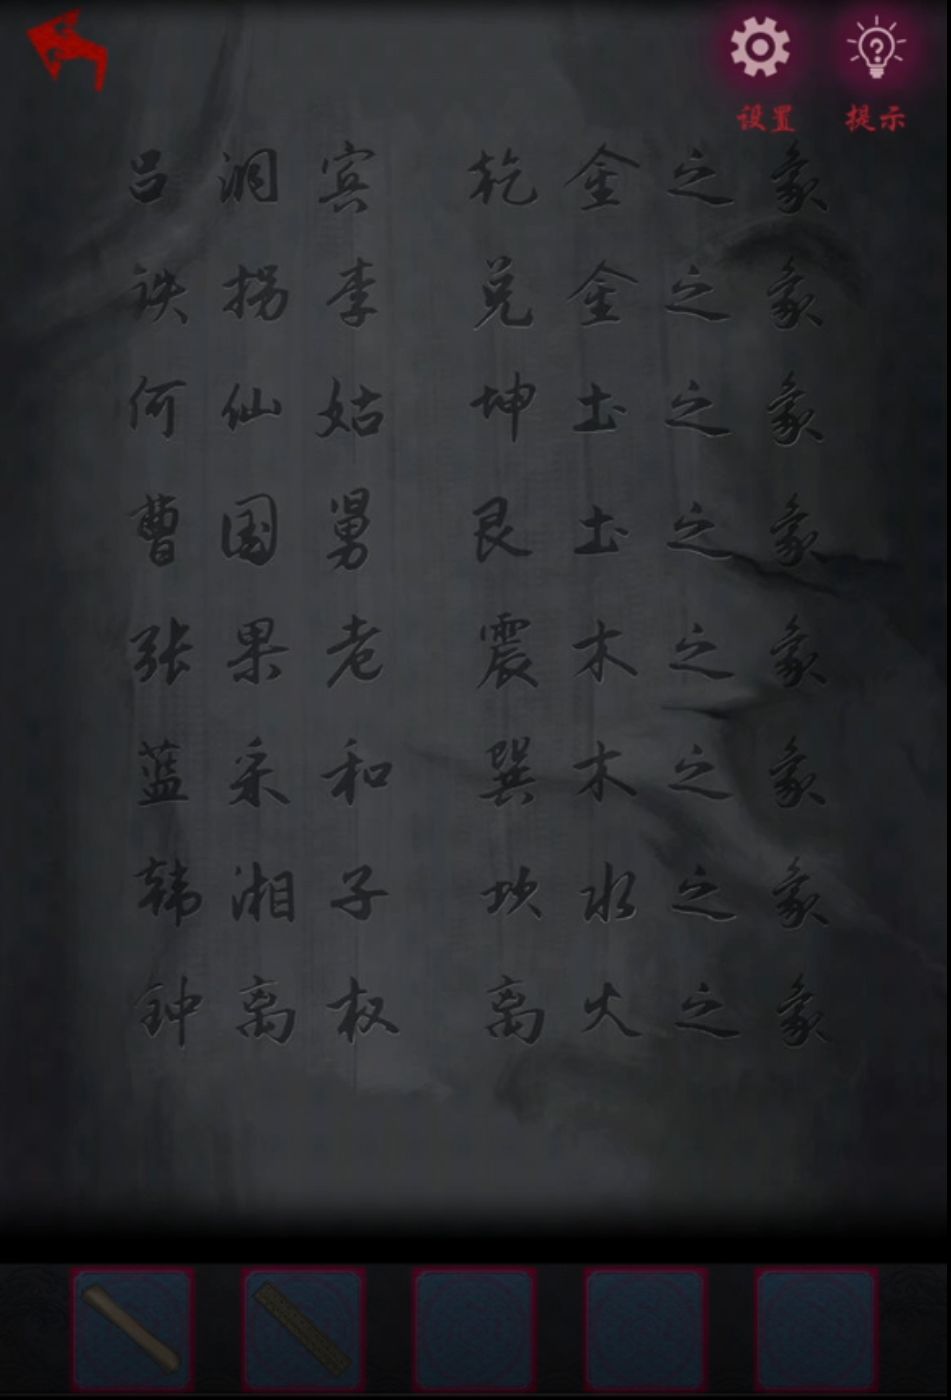 设置 提示
吕洞宾 乾金之象
铁拐李 兑金之象
何仙姑 坤土之象
曹国舅 艮土之象
张果老 震木之象
蓝采和 巽木之象
韩湘子 坎水之象
钟离权 离火之象